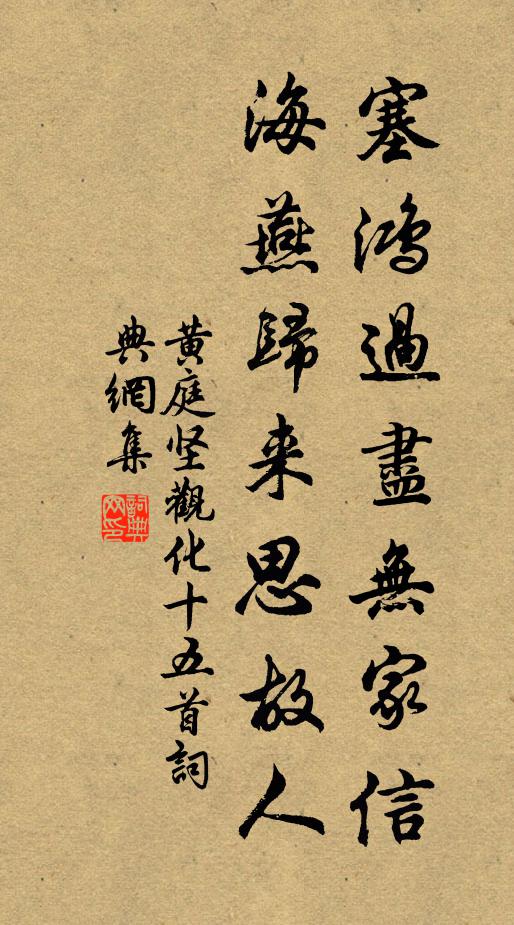 塞鴻過盡無家信
海燕歸来思故人
黄庭坚觀化十五首詞
典網集
詞典
网印